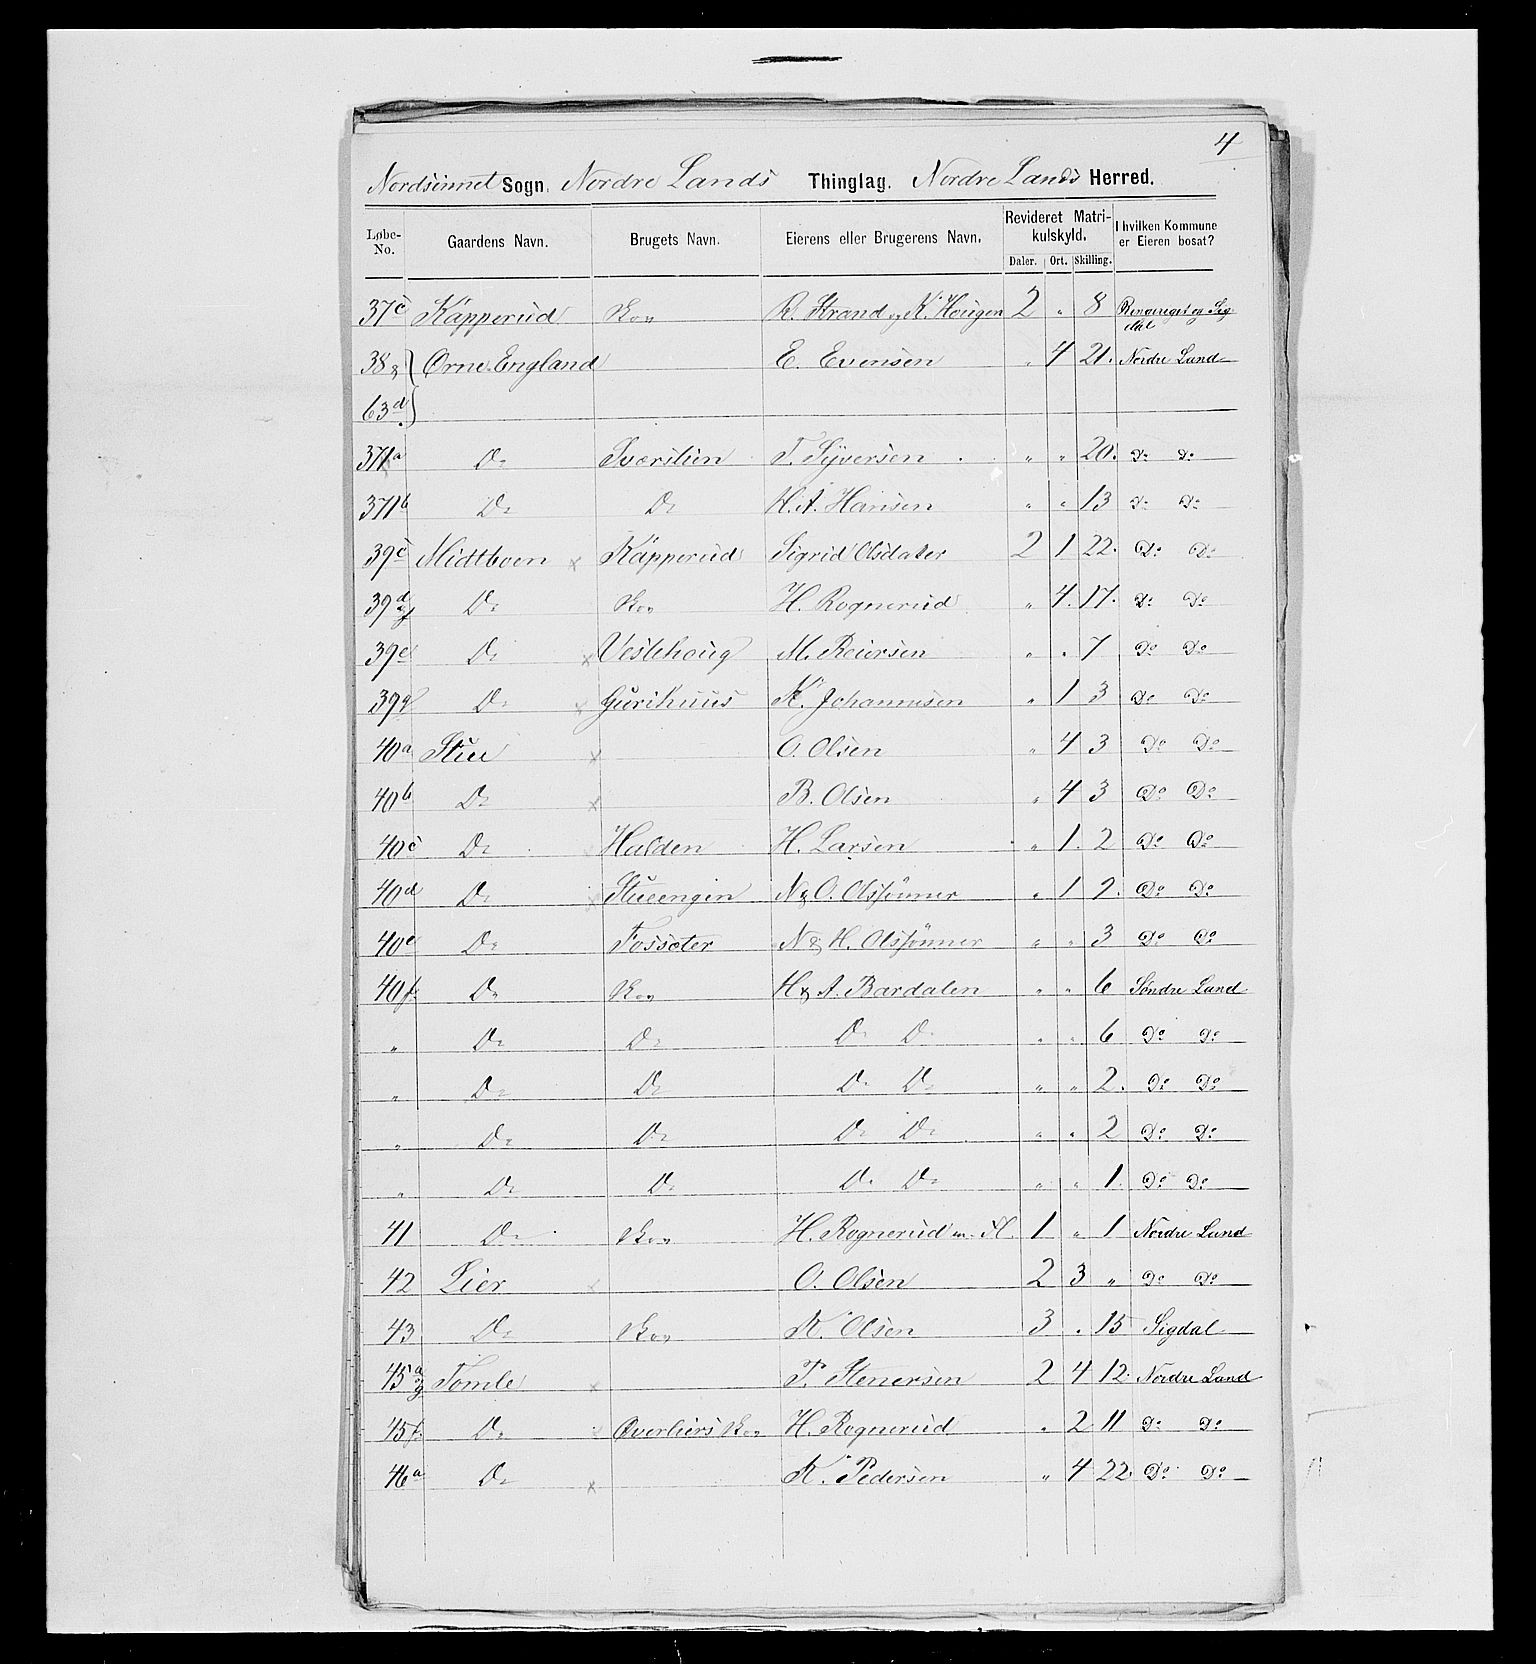 4
Nordsinnet Sogn. Nordre Lands Thinglag. Nordre Lands Herred.
Løbe-No. Gaardens Navn. Brugets Navn. Eierens eller Brugerens Navn. Revideret Matrikulskyld. I hvilken Kommune er Eieren bosat?
Daler. Ort. Skilling.
37c Kapperud Skov R. Strand og K. Hougen 2 " 8 Ringeriget og Sigdal
38 & Ørne England E. Evensen " 4 21. Nordre Land
63d
371a Do Sværslien T. Syversen " " 20. Do Do
371b Do Do H. A. Hansen " " 13 Do Do
39c Midtboen x Kapperud Sigrid Olsdater 2 1 22. Do Do
39d Do Skov H. Rognerud " 4. 17. Do Do
39e Do x Veslehoug M. Reiersen " " 7 Do Do
39g Do x Gurihuus K. Johannesen " 1 3 Do Do
40a Stue x O. Olsen " 4 3 Do Do
40b Do x B. Olsen " 4 3 Do Do
40c Do Halden H. Larsen " 1. 2 Do Do
40d Do x Stueengin N & O. Olssønner " 1 2. Do Do
40e Do Fossæter N & H. Olssønner " " 3 Do Do
40f. Do Skov H & A. Bardalen " " 6 Søndre Land
" Do Do Do Do " " 6 Do Do
" Do Do Do Do " " 2. Do Do
" Do Do Do Do " " 2 Do Do
" Do Do Do Do " " 1 Do Do
41 Do Skov H. Rognerud m. Fl. 1 " 1 Nordre Land
42 Lier x O. Olsen 2 3 " Do Do
43 Do Skov K. Olsen 3 " 15 Sigdal
45a Tomle x P. Stenersen 2 4 12. Nordre Land
45f. Do Øverliers Skov H. Rognerud " 2 11 Do Do
46a Do x K. Pedersen " 4 22. Do Do